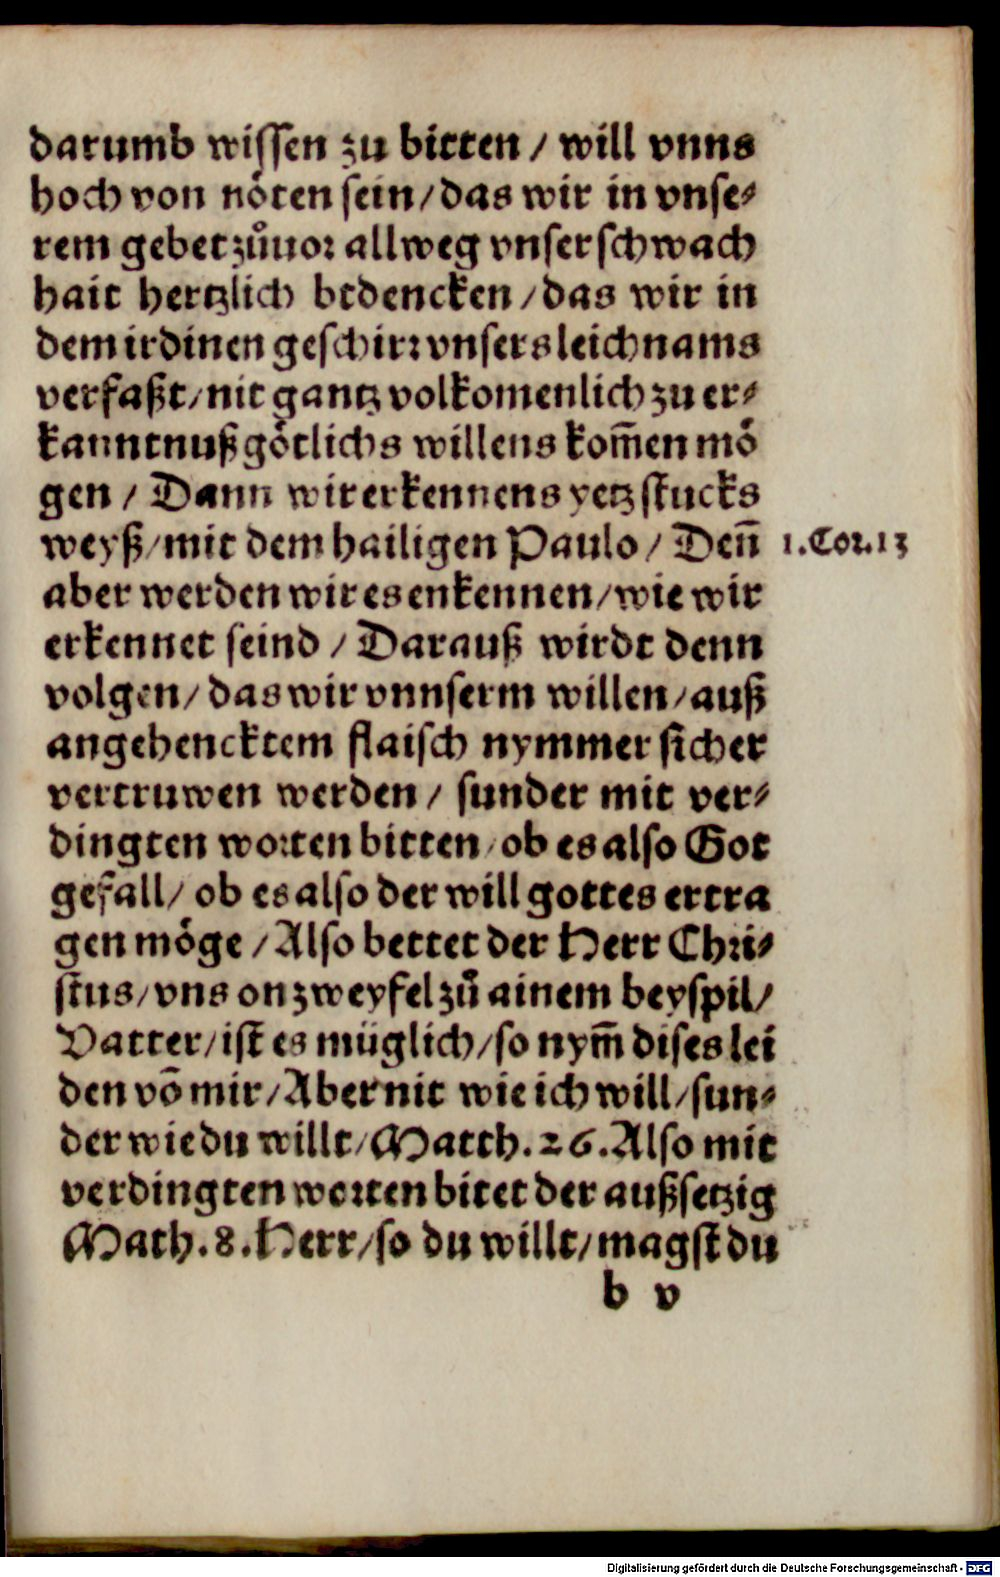 darumb wissen zu bitten / will vnns
hoch von nöten sein / das wir in vnse-
rem gebet zůuor allweg vnser schwach
hait hertzlich bedencken / das wir in
dem irdinen geschirr vnsers leichnams
verfaßt / nit gantz volkomenlich zu er-
kanntnuß götlichs willens kom̄en mö
gen / Dann wir erkennens yetz stucks
weyß / mit dem hailigen Paulo / Den̄
1. Cor. 13
aber werden wir es enkennen / wie wir
erkennet seind / Darauß wirdt denn
volgen / das wir vnnserm willen / auß
angehencktem flaisch nymmer sicher
vertruwen werden / sunder mit ver-
dingten worten bitten / ob es also Got
gefall / ob es also der will gottes ertra
gen möge / Also bettet der Herr Chri-
stus / vns on zweyfel zů ainem beyspil /
Vatter / ist es müglich / so nym̄ dises lei
den vō mir / Aber nit wie ich will / sun-
der wie du willt / Matth. 26. Also mit
verdingten worten bitet der außsetzig
Math. 8. Herr / so du willt / magst du
b v
Digitalisierung gefördert durch die Deutsche Forschungsgemeinschaft - DFG